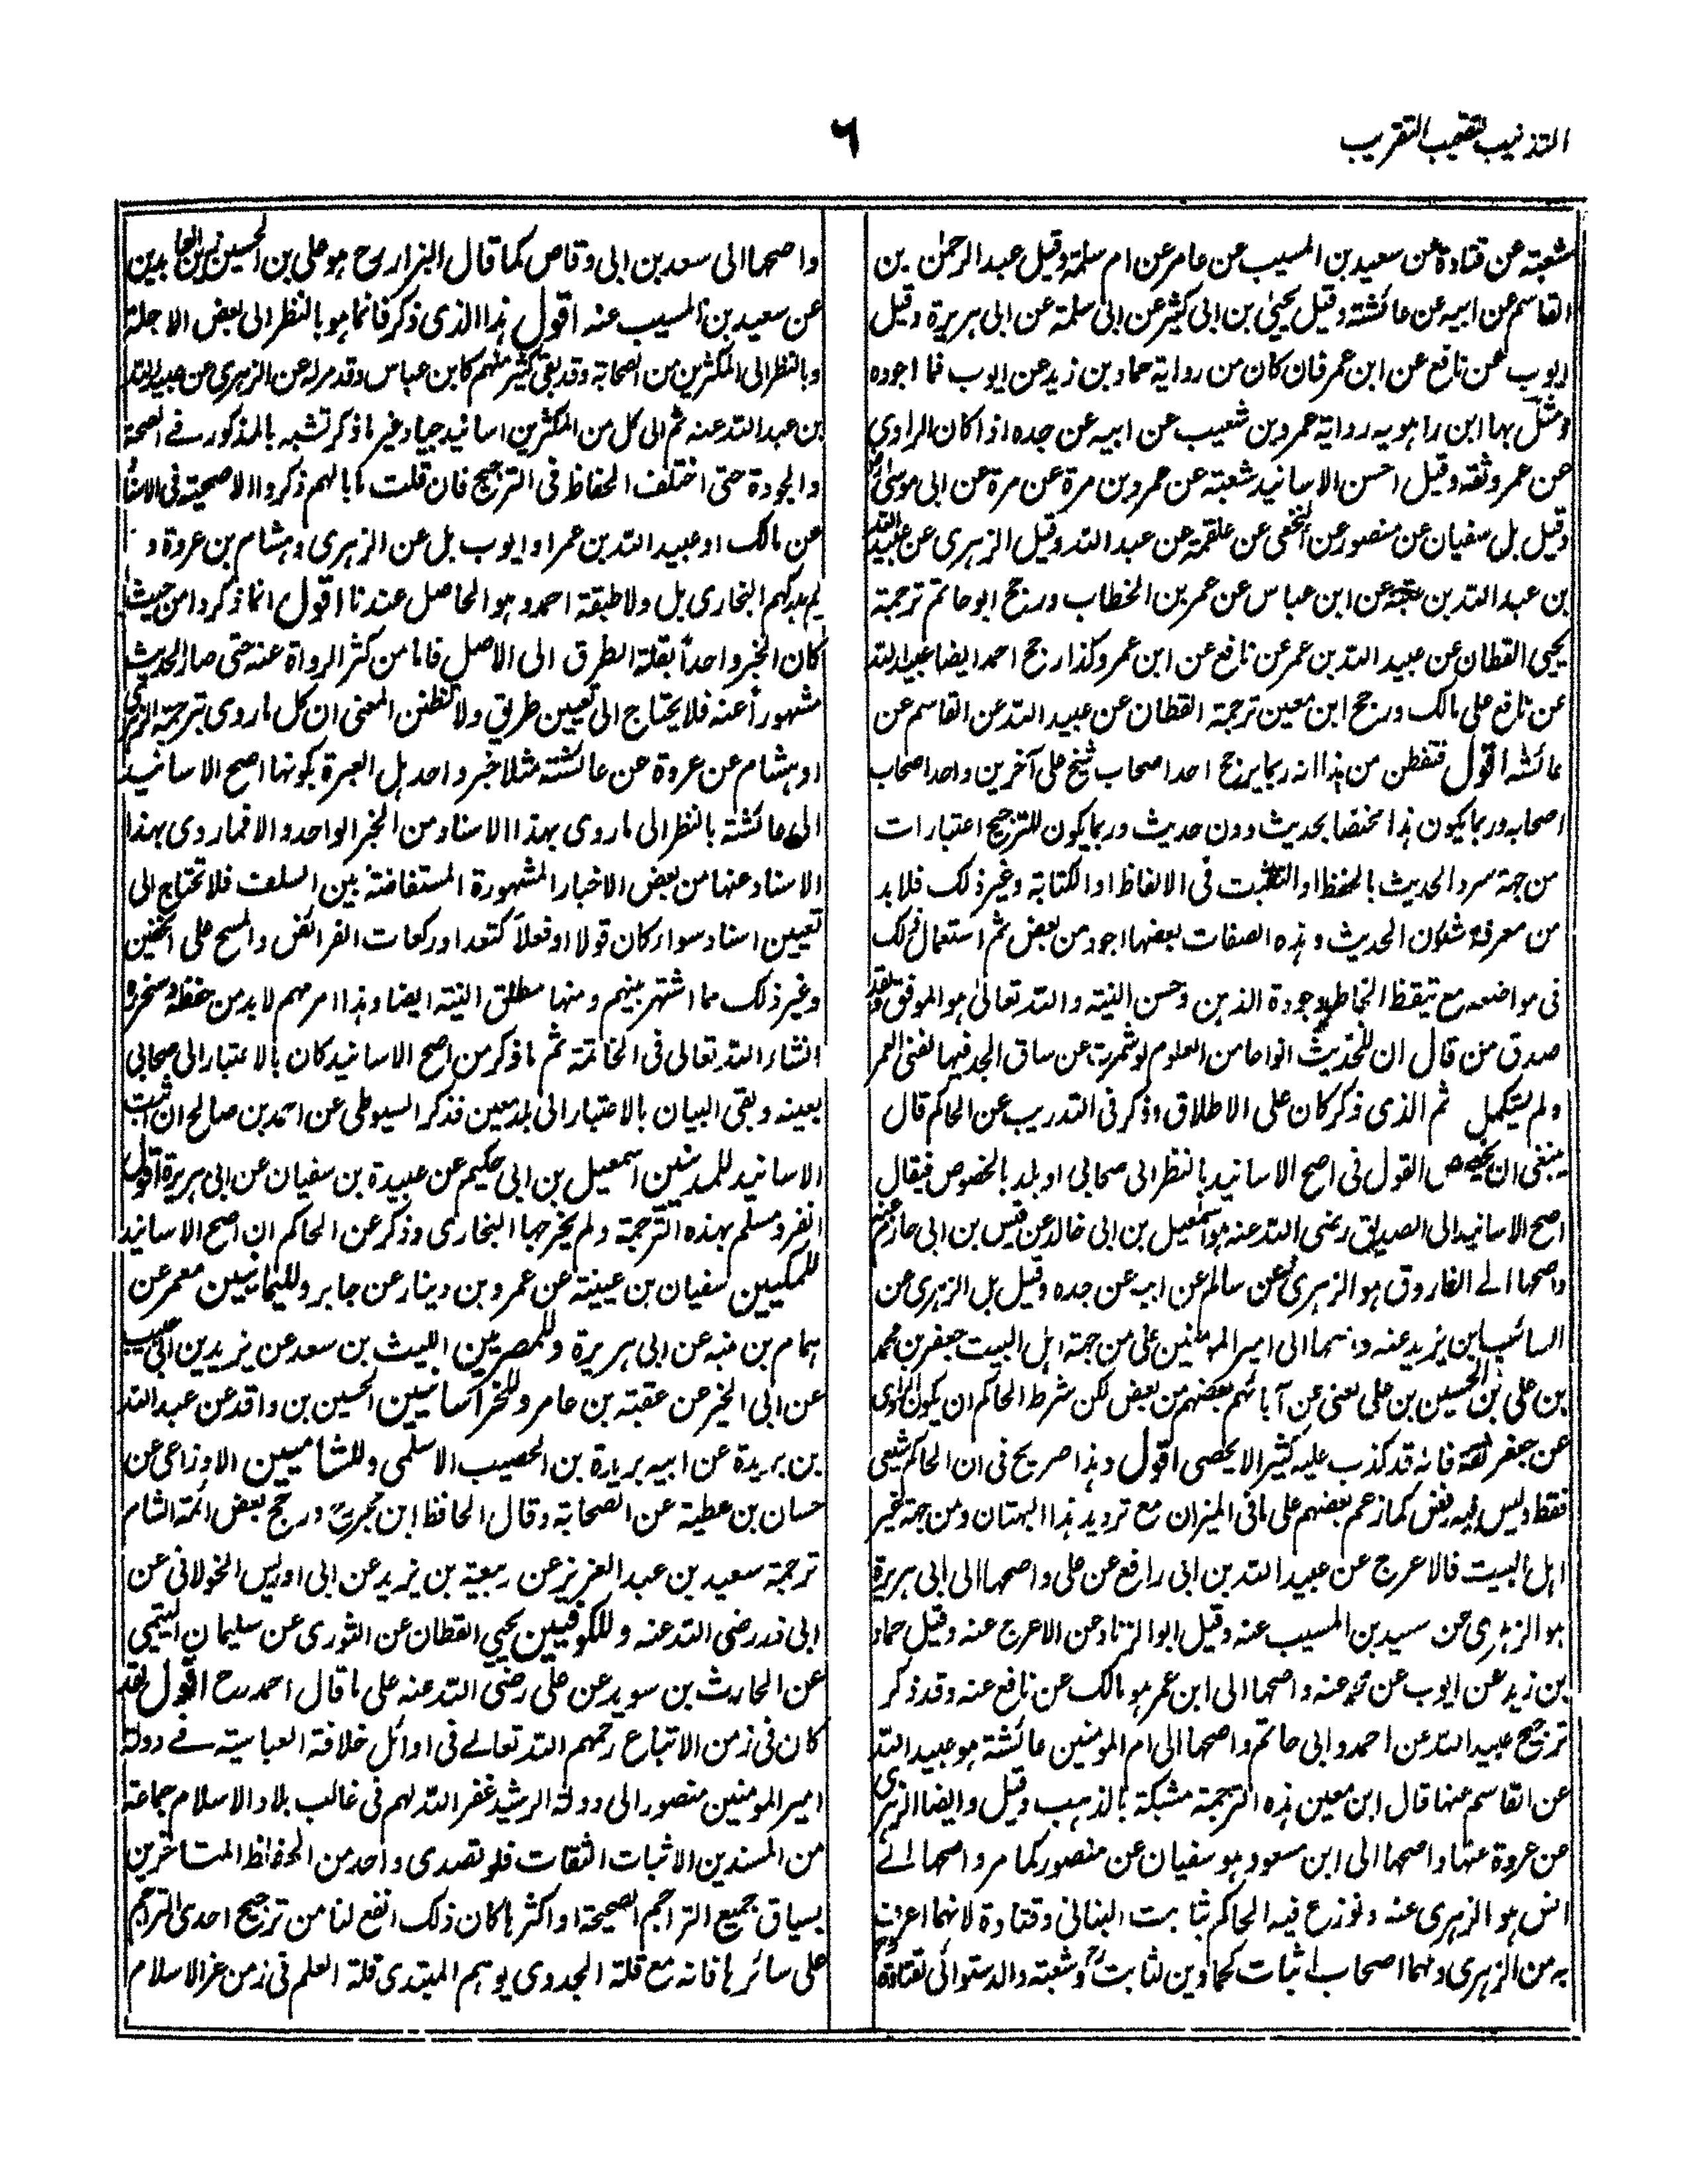 التذنيب تعقيب التقريب
٦
شعبة عن قتادة عن سعيد بن المسيب عن عامر عن ام سلمة وقيل عبد الرحمٰن بن
القاسم عن ابيه عن عائشة وقيل يحيىٰ بن ابى كثير عن ابى سلمة عن ابى هريرة وقيل
ايوب عن نافع عن ابن عمر فان كان من رواية حماد بن زيد عن ايوب فما اجوده
ومثل بها ابن راهويه رواية عمرو بن شعيب عن ابيه عن جده اذا كان الراوي
عن عمرو ثقة وقيل احسن الاسانيد شعبة عن عمرو بن مرة عن مرة عن ابى موسىٰ
وقيل بل سفيان عن منصور عن النخعى عن علقمة عن عبد الله وقيل الزهرى عن عبيد الله
بن عبد الله بن عتبة عن ابن عباس عن عمر بن الخطاب ورجح ابو حاتم ترجمة
يحيى القطان عن عبيد الله بن عمر عن نافع عن ابن عمر وكذا رجح احمد ايضا عبيد الله
عن نافع على مالك ورجح ابن معين ترجمة القطان عن عبيد الله عن القاسم عن
عائشه اقول فتفطن من هذا انه ربما يرجح احد اصحاب شيخ على آخرين واحد اصحاب
اصحابه وربما يكون هذا مختصا بحديث دون حديث وربما يكون للترجيح اعتبارات
من جهة سرد الحديث بالحفظ او التثبت فى الالفاظ او الكتابة وغير ذلك فلا بد
من معرفة شئون الحديث و هذه الصفات بعضها اجود من بعض ثم استعمال ذلك
فى مواضعه مع تيقظ الخاطر وجودة الذهن وحسن النية والله تعالىٰ هو الموفق ولقد
صدق من قال ان للحديث انواعا من العلوم لو شمرت عن ساق الجد فيها لفنى العمر
ولم يستكمل ثم الذى ذكر كان على الاطلاق وذكر فى التدريب عن الحاكم قال
ينبغى ان يخصص القول فى اصح الاسانيد بالنظر الى صحابى او بلد بالخصوص فيقال
اصح الاسانيد الى الصديق رضى الله عنه هو اسمٰعيل بن ابى خالد عن قيس بن ابى حازم عنه
واصحها الے الفاروق هو الزهرى عن سالم عن ابيه عن جده وقيل بل الزهرى عن
السائب بن يزيد عنه واصحها الى امير المومنين على من جهة اهل البيت جعفر بن محمد
بن على بن الحسين بن على يعنى عن آبائهم بعضهم من بعض لكن شرط الحاكم ان يكون الراوى
عن جعفر ثقة فانه قد كذب عليه كثير لا يحصى اقول وهذا صريح فى ان الحاكم شيعى
فقط وليس فيه رفض كما زعم بعضهم على ما فى الميزان مع ترديد هذا البهتان ومن جهة غير
اهل البيت فالاعرج عن عبيد الله بن ابى رافع عن على واصحها الى ابى هريرة
هو الزهرى عن سعيد بن المسيب عنه وقيل ابو الزناد عن الاعرج عنه وقيل حماد
بن زيد عن ايوب عن محمد عنه واصحها الى ابن عمر هو مالك عن نافع عنه وقد ذكر
ترجيح عبيد الله عن احمد وابى حاتم واصحها الى ام المومنين عائشة هو عبيد الله
عن القاسم عنها قال ابن معين هذه الترجمة مشبكة بالذهب وقيل وايضا الزهرى
عن عروة عنها واصحها الى ابن مسعود هو سفيان عن منصور كما مر واصحها الے
انس هو الزهرى عنه ونوزع فيه الحاكم ثابت البنانى وقتادة لانهما اعرف
به من الزهرى ولهما اصحاب اثبات كحمادين لثابت وشعبة والدستوائى لقتادة
واصحها الى سعد بن ابى وقاص كما قال البزار رح هو على بن الحسين زين العابدين
عن سعيد بن المسيب عنه اقول هذا الذى ذكر فانما هو بالنظر الى بعض الاجلة
وبالنظر الى المكثرين من الصحابة وقد بقى كثير منهم كابن عباس وقد مر له عن الزهرى عن عبيد الله
بن عبد الله عنه ثم الى كل من المكثرين اسانيد جياد غير ما ذكر تشبه بالمذكور فے الصحة
والجودة حتى اختلف الحفاظ فى الترجيح فان قلت ما بالهم ذكروا الاصحية فى الاسناد
عن مالك او عبيد الله بن عمر او ايوب بل عن الزهرى وهشام بن عروة و
لم يدركهم البخارى بل ولا طبقة احمد وهو الحاصل عندنا اقول انما ذكروا من حيث
كان الخبر واحداً بقلة الطرق الى الاصل فاما من كثر الرواة عنه حتى صار الحديث
مشهوراً عنه فلا يحتاج الى تعيين طريق ولا تظنن المعنى ان كل ما روى بترجمة الزهرى
او هشام عن عروة عن عائشة مثلا خبر واحد بل العبرة بكونها اصح الاسانيد
الى عائشة بالنظر الى ما روى بهذا الاسناد من الخبر الواحد والا فما روى بهذا
الاسناد عنها من بعض الاخبار المشهورة المستفاضة بين السلف فلا تحتاج الى
تعيين اسناد سواء كان قولا او فعلاً كتعداد ركعات الفرائض والمسح على الخفين
وغير ذلك مما اشتهر بينهم ومنها مطلق النية ايضا وهذا امر مهم لا بد من حفظه وسنحرره
انشاء الله تعالى فى الخاتمة ثم ما ذكر من اصح الاسانيد كان بالاعتبار الى صحابى
بعينه وبقى البيان بالاعتبار الى بلد معين فذكر السيوطى عن احمد بن صالح ان اثبت
الاسانيد للمدنيين اسمعيل بن ابى حكيم عن عبيدة بن سفيان عن ابى هريرة اقول
انفرد مسلم بهذه الترجمة ولم يخرجها البخارى وذكر عن الحاكم ان اصح الاسانيد
للمكيين سفيان بن عيينة عن عمرو بن دينار عن جابر ولليمانيين معمر عن
همام بن منبه عن ابى هريرة وللمصريين الليث بن سعد عن يزيد بن ابى حبيب
عن ابى الخير عن عقبة بن عامر وللخراسانيين الحسين بن واقد عن عبد الله
بن بريدة عن ابيه بريدة بن الحصيب الاسلمى وللشاميين الاوزاعى عن
حسان بن عطية عن الصحابة وقال الحافظ ابن حجر رح ورجح بعض ائمة الشام
ترجمة سعيد بن عبد العزيز عن ربيعة بن يزيد عن ابى ادريس الخولانى عن
ابى ذر رضى الله عنه وللكوفيين يحيى القطان عن الثورى عن سليمان التيمى
عن الحارث بن سويد عن على رضى الله عنه على ما قال احمد رح اقول لقد
كان فى زمن الاتباع رحمهم الله تعالے فى اوائل خلافة العباسية فے دولة
امير المومنين منصور الى دولة الرشيد غفر الله لهم فى غالب بلاد الاسلام جماعة
من المسندين الاثبات الثقات فلو تصدى واحد من الحفاظ المتاخرين
بسياق جميع التراجم الصحيحة او اكثرها كان ذلك انفع لنا من ترجيح احدى التراجم
على سائرها فانه مع قلة الجدوى يوهم المبتدى قلة العلم فى زمن غر الاسلام